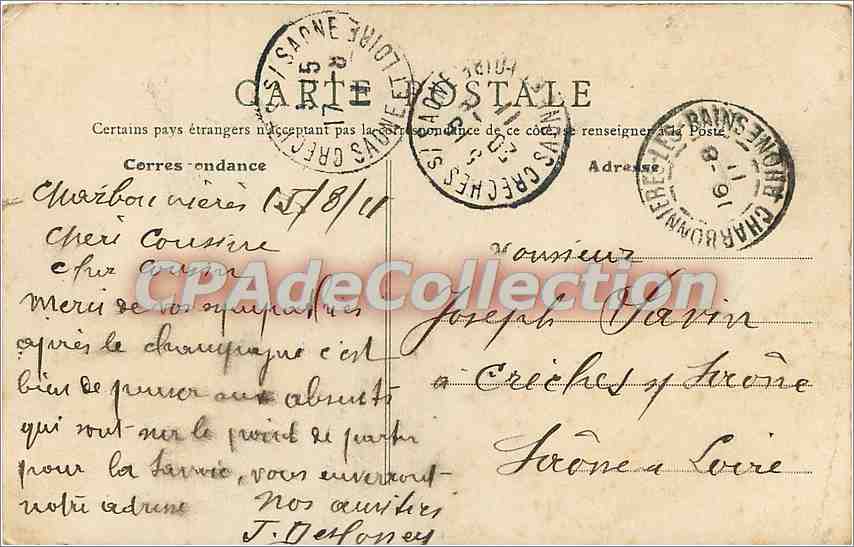 CARTE POSTALE
Certains pays étrangers n'acceptant pas la correspondance de ce côté, se renseigner à la Poste
Correspondance
Adresse
CRECHES S/ SAONE
SAONE ET LOIRE
CRECHES S/ SAONE
CHARBONNIERES-LES-BAINS RHONE
16-8
11
Charbonnières 15/8/11
Chère Cousine
Cher Cousin
Merci de vos sympathies
après le champagne c'est
bien de penser aux absents
qui sont sur le point de partir
pour la Savoie, vous enverront
notre adresse
Nos amitiés
J.
Monsieur
Joseph Savin
à Crèches s/ Saône
Saône & Loire
CPAdeCollection